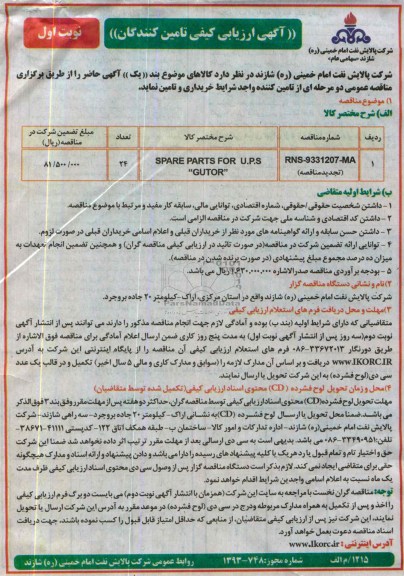 شرکت پالایش نفت امام خمینی (ره)
شازند «سهامی عام»
(( آگهی ارزیابی کیفی تامین کنندگان ))
نوبت اول
شرکت پالایش نفت امام خمینی (ره) شازند در نظر دارد کالاهای موضوع بند «یک» آگهی حاضر را از طریق برگزاری
مناقصه عمومی دو مرحله ای از تامین کننده واجد شرایط خریداری و تامین نماید.
۱) موضوع مناقصه
الف) شرح مختصر کالا
ردیف شماره مناقصه شرح مختصر کالا تعداد مبلغ تضمین شرکت در مناقصه (ریال)
۱ RNS-9331207-MA (تجدیدمناقصه) SPARE PARTS FOR U.P.S "GUTOR" ۲۴ ۸۱/۵۰۰/۰۰۰
ب) شرایط اولیه متقاضی
۱- داشتن شخصیت حقوقی /حقوقی، شماره اقتصادی، توانایی مالی، سابقه کار مفید و مرتبط با موضوع مناقصه.
۲- داشتن کد اقتصادی و شناسه ملی جهت شرکت در مناقصه الزامی است.
۳- داشتن حسن سابقه و ارائه گواهینامه های مورد نظر از خریداران قبلی و اعلام اسامی خریداران قبلی در صورت لزوم.
۴- توانایی ارائه تضمین شرکت در مناقصه(در صورت تائید در ارزیابی کیفی مناقصه گران) و همچنین تضمین انجام تعهدات به
میزان ده درصد مجموع مبلغ پیشنهادی (در صورت برنده شدن در مناقصه).
۵- بودجه برآوردی مناقصه صدرالاشاره ۱,۶۲۰,۰۰۰,۰۰۰ ریال می باشد.
۲)نام و نشانی دستگاه مناقصه گزار
شرکت پالایش نفت امام خمینی (ره) شازند واقع در استان مرکزی، اراک -کیلومتر ۲۰ جاده بروجرد.
۳)مهلت و محل دریافت فرم های استعلام ارزیابی کیفی
متقاضیانی که دارای شرایط اولیه (بند ب) بوده و آمادگی لازم جهت انجام مناقصه مذکور را دارند می توانند پس از انتشار آگهی
نوبت دوم(سه روز پس از انتشار آگهی نوبت اول) به مدت پنج روز کاری ضمن ارسال اعلام آمادگی برای مناقصه فوق الاشاره از
طریق دورنگار ۳۳۶۷۲۰۱۳-۰۸۶ فرم های استعلام ارزیابی کیفی آن مناقصه را از پایگاه اینترنتی این شرکت به آدرس
WWW.IKORC.IR دریافت و بر اساس آن مدارک لازمه را (سوابق و مدارک کاری و مالی ۵ سال اخیر) تکمیل و در قالب یک عدد
سی دی(لوح فشرده) به این شرکت تحویل یا ارسال نمایند.
۴)محل و زمان تحویل لوح فشرده (CD) محتوی اسناد ارزیابی کیفی(تکمیل شده توسط متقاضیان)
مهلت تحویل لوح فشرده(CD) محتوی اسناد ارزیابی کیفی توسط مناقصه گران، حداکثر دو هفته پس از مهلت مقرر وفق بند ۳ فوق الذکر
می باشد. ضمنا محل تحویل یا ارسال لوح فشرده (CD)به نشانی اراک - کیلومتر ۲۰ جاده بروجرد- سه راهی شازند - شرکت
پالایش نفت امام خمینی (ره) شازند- اداره تدارکات و امور کالا - ساختمان ب- طبقه همکف اتاق ۱۲۲ -کدپستی ۴۱۱۱۱-۳۸۶۷۱
تلفن:۳۳۴۹۰۹۵۱-۰۸۶ می باشد. بدیهی است به سی دی ارسالی بعد از مهلت مقرر ترتیب اثر داده نخواهد شد ضمنا این شرکت
حق و اختیار تام و تمام قبول یا رد هر یک یا کلیه پیشنهاد های رسیده را دارا می باشد و دادن پیشنهاد و ارائه اسناد و مدارک هیچگونه
حقی برای متقاضی ایجاد نمی کند. لازم بذکر است دستگاه مناقصه گزار پس از وصول سی دی محتوی اسناد ارزیابی کیفی ظرف مدت
یک ماه نسبت به اعلام اسامی واجدین شرایط اقدام خواهد نمود.
توجه: مناقصه گران نخست با مراجعه به سایت این شرکت (همزمان با انتشار آگهی نوبت دوم) می بایست دو برگ فرم ارزیابی کیفی
را اخذ و پس از تکمیل به همراه مدارک مربوطه ودرج در سی دی (لوح فشرده) در موعد مقرر به آدرس این شرکت ارسال یا تحویل
نمایند. این شرکت نیز پس از ارزیابی کیفی متقاضیان، از منابعی که حداقل امتیاز قابل قبول را کسب نموده باشند، جهت دریافت
اسناد مناقصه دعوت بعمل خواهد آورد.
آدرس اینترنتی: www.Ikorc.ir
۱۲۱۵/م الف
شماره مجوز: ۷۴۸-۱۳۹۳
روابط عمومی شرکت پالایش نفت امام خمینی (ره) شازند